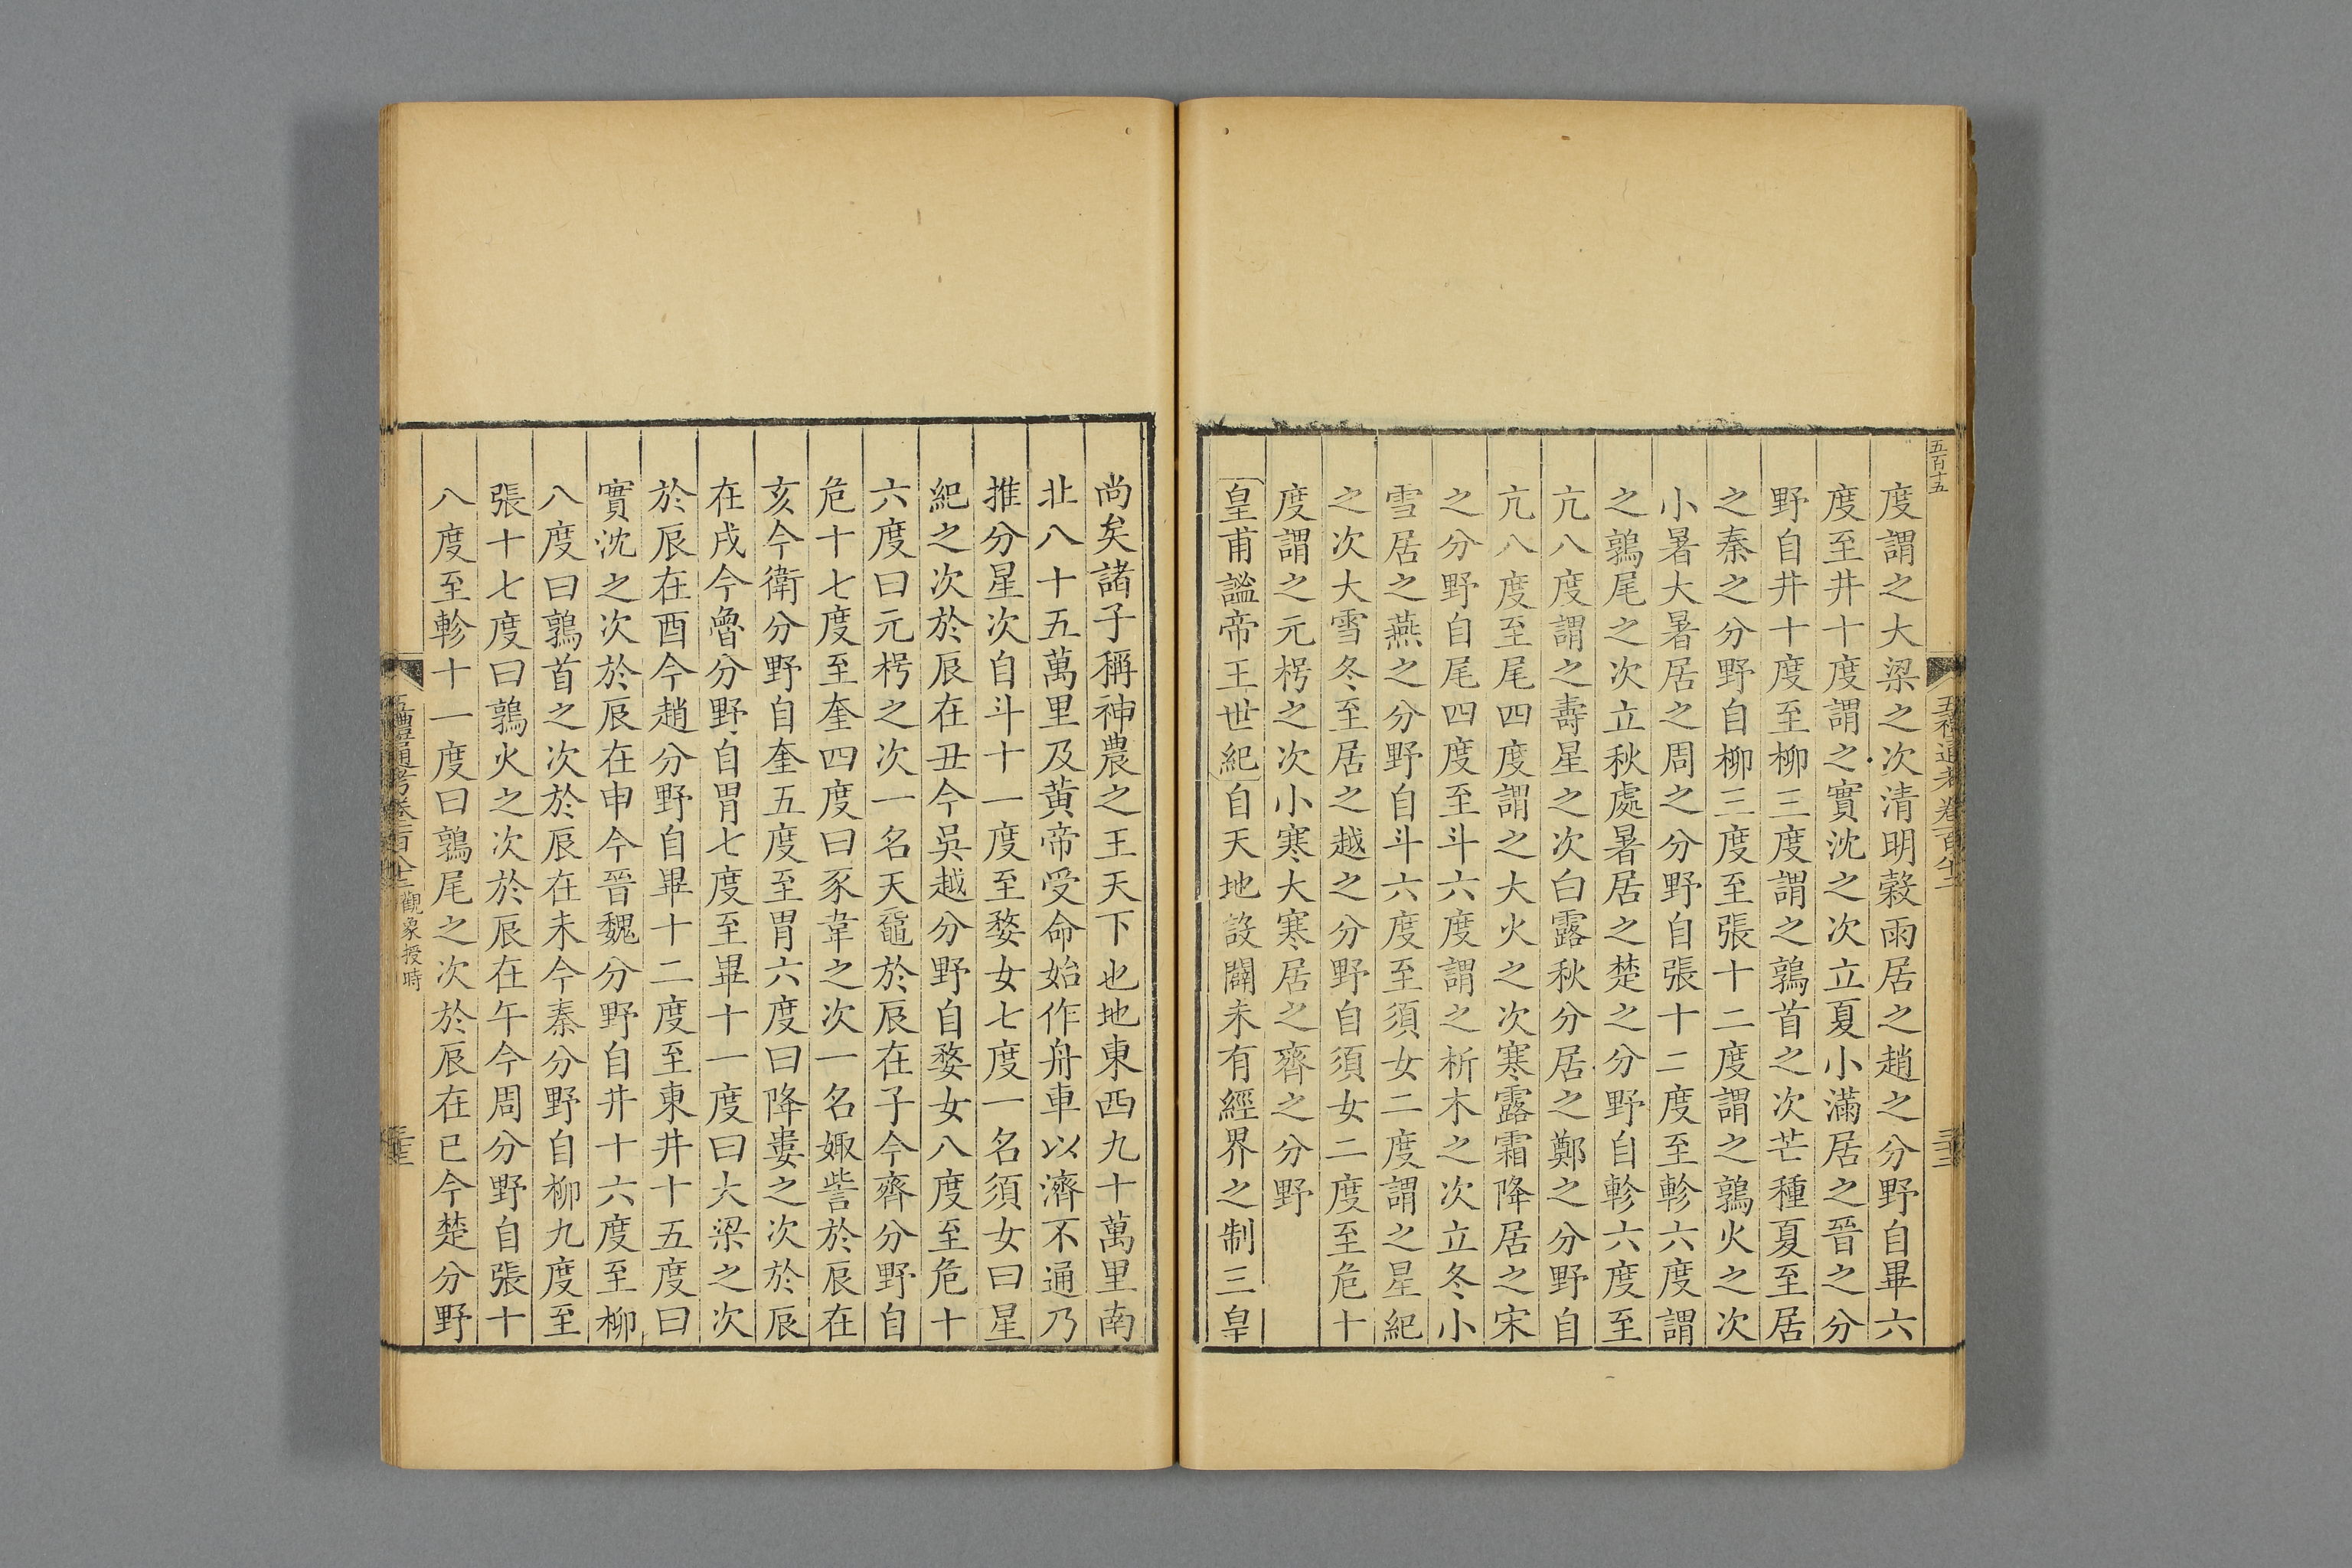 五百十五
度謂之大梁之次清明穀雨居之趙之分野自畢六
度至井十度謂之實沈之次立夏小滿居之晉之分
野自井十度至柳三度謂之鶉首之次芒種夏至居
之秦之分野自柳三度至張十二度謂之鶉火之次
小暑大暑居之周之分野自張十二度至軫六度謂
之鶉尾之次立秋處暑居之楚之分野自軫六度至
亢八度謂之壽星之次白露秋分居之鄭之分野自
亢八度至尾四度謂之大火之次寒露霜降居之宋
之分野自尾四度至斗六度謂之析木之次立冬小
雪居之燕之分野自斗六度至須女二度謂之星紀
之次大雪冬至居之越之分野自須女二度至危十
度謂之元枵之次小寒大寒居之齊之分野
皇甫謐帝王世紀自天地設闢未有經界之制三皇
尚矣諸子稱神農之王天下也地東西九十萬里南
北八十五萬里及黃帝受命始作舟車以濟不通乃
推分星次自斗十一度至婺女七度一名須女曰星
紀之次於辰在丑今吳越分野自婺女八度至危十
六度曰元枵之次一名天黿於辰在子今齊分野自
危十七度至奎四度曰豕韋之次一名娵訾於辰在
亥今衛分野自奎五度至胃六度曰降婁之次於辰
在戌今魯分野自胃七度至畢十一度曰大梁之次
於辰在酉今趙分野自畢十二度至東井十五度曰
實沈之次於辰在申今晉魏分野自井十六度至柳
八度曰鶉首之次於辰在未今秦分野自柳九度至
張十七度曰鶉火之次於辰在午今周分野自張十
八度至軫十一度曰鶉尾之次於辰在巳今楚分野
五禮通考卷一百八十二 觀象授時